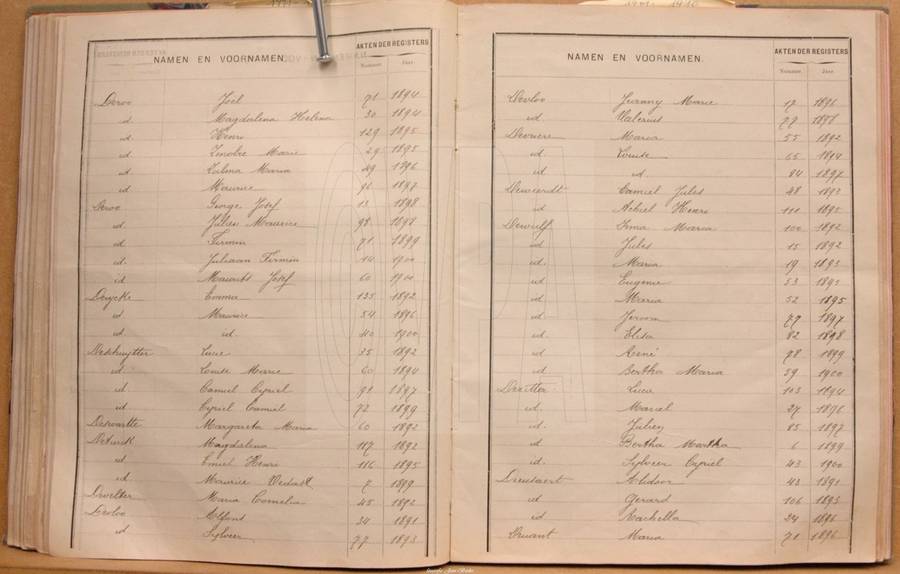 NAMEN EN VOORNAMEN.
AKTEN DER REGISTERS
Nummer Jaar
Deroo Joël 71 1894
id Magdalena Helena 30 1894
id Henri 129 1895
id Zenobie Marie 29 1895
id Zulma Maria 49 1896
id Maurice 96 1897
Deroo George Josef 13 1898
id Julien Maurice 98 1898
id Firmin 71 1899
id Juliaan Firmin 14 1900
id Maurits Josef 60 1900
Emma 135 1892
id Maurice 54 1896
id id 40 1900
Lucie 35 1892
id Louise Marie 60 1894
id Camiel Cyriel 91 1897
id Cyriel Camiel 72 1899
Margareta Maria 60 1892
Magdalena 117 1892
id Emiel Henri 116 1895
id Maurice 7 1899
Maria Cornelia 45 1892
Devloo Alfons 34 1891
id Sylveer 77 1893
NAMEN EN VOORNAMEN.
AKTEN DER REGISTERS
Nummer Jaar
Devloo Jeanny Marie 17 1896
id Valerius 77 1898
Maria 55 1892
id Louise 65 1894
id id 84 1897
Camiel Jules 48 1892
id Achiel Henri 111 1895
Dewulf Irma Maria 100 1892
id Jules 15 1892
id Maria 19 1893
id Eugenie 53 1893
id Maria 52 1895
id Jeroom 77 1897
id Elisa 82 1898
id René 78 1899
id Bertha Maria 59 1900
Lucia 103 1894
id Marcel 27 1896
id Julien 85 1897
id Bertha Martha 6 1899
id Sylveer Cyriel 43 1900
43 1891
id Gerard 106 1893
id Rachella 24 1896
Maria 71 1896